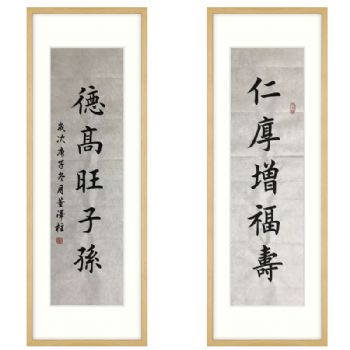 仁厚增福壽
德高旺子孫
歲次庚子冬月董澤柱